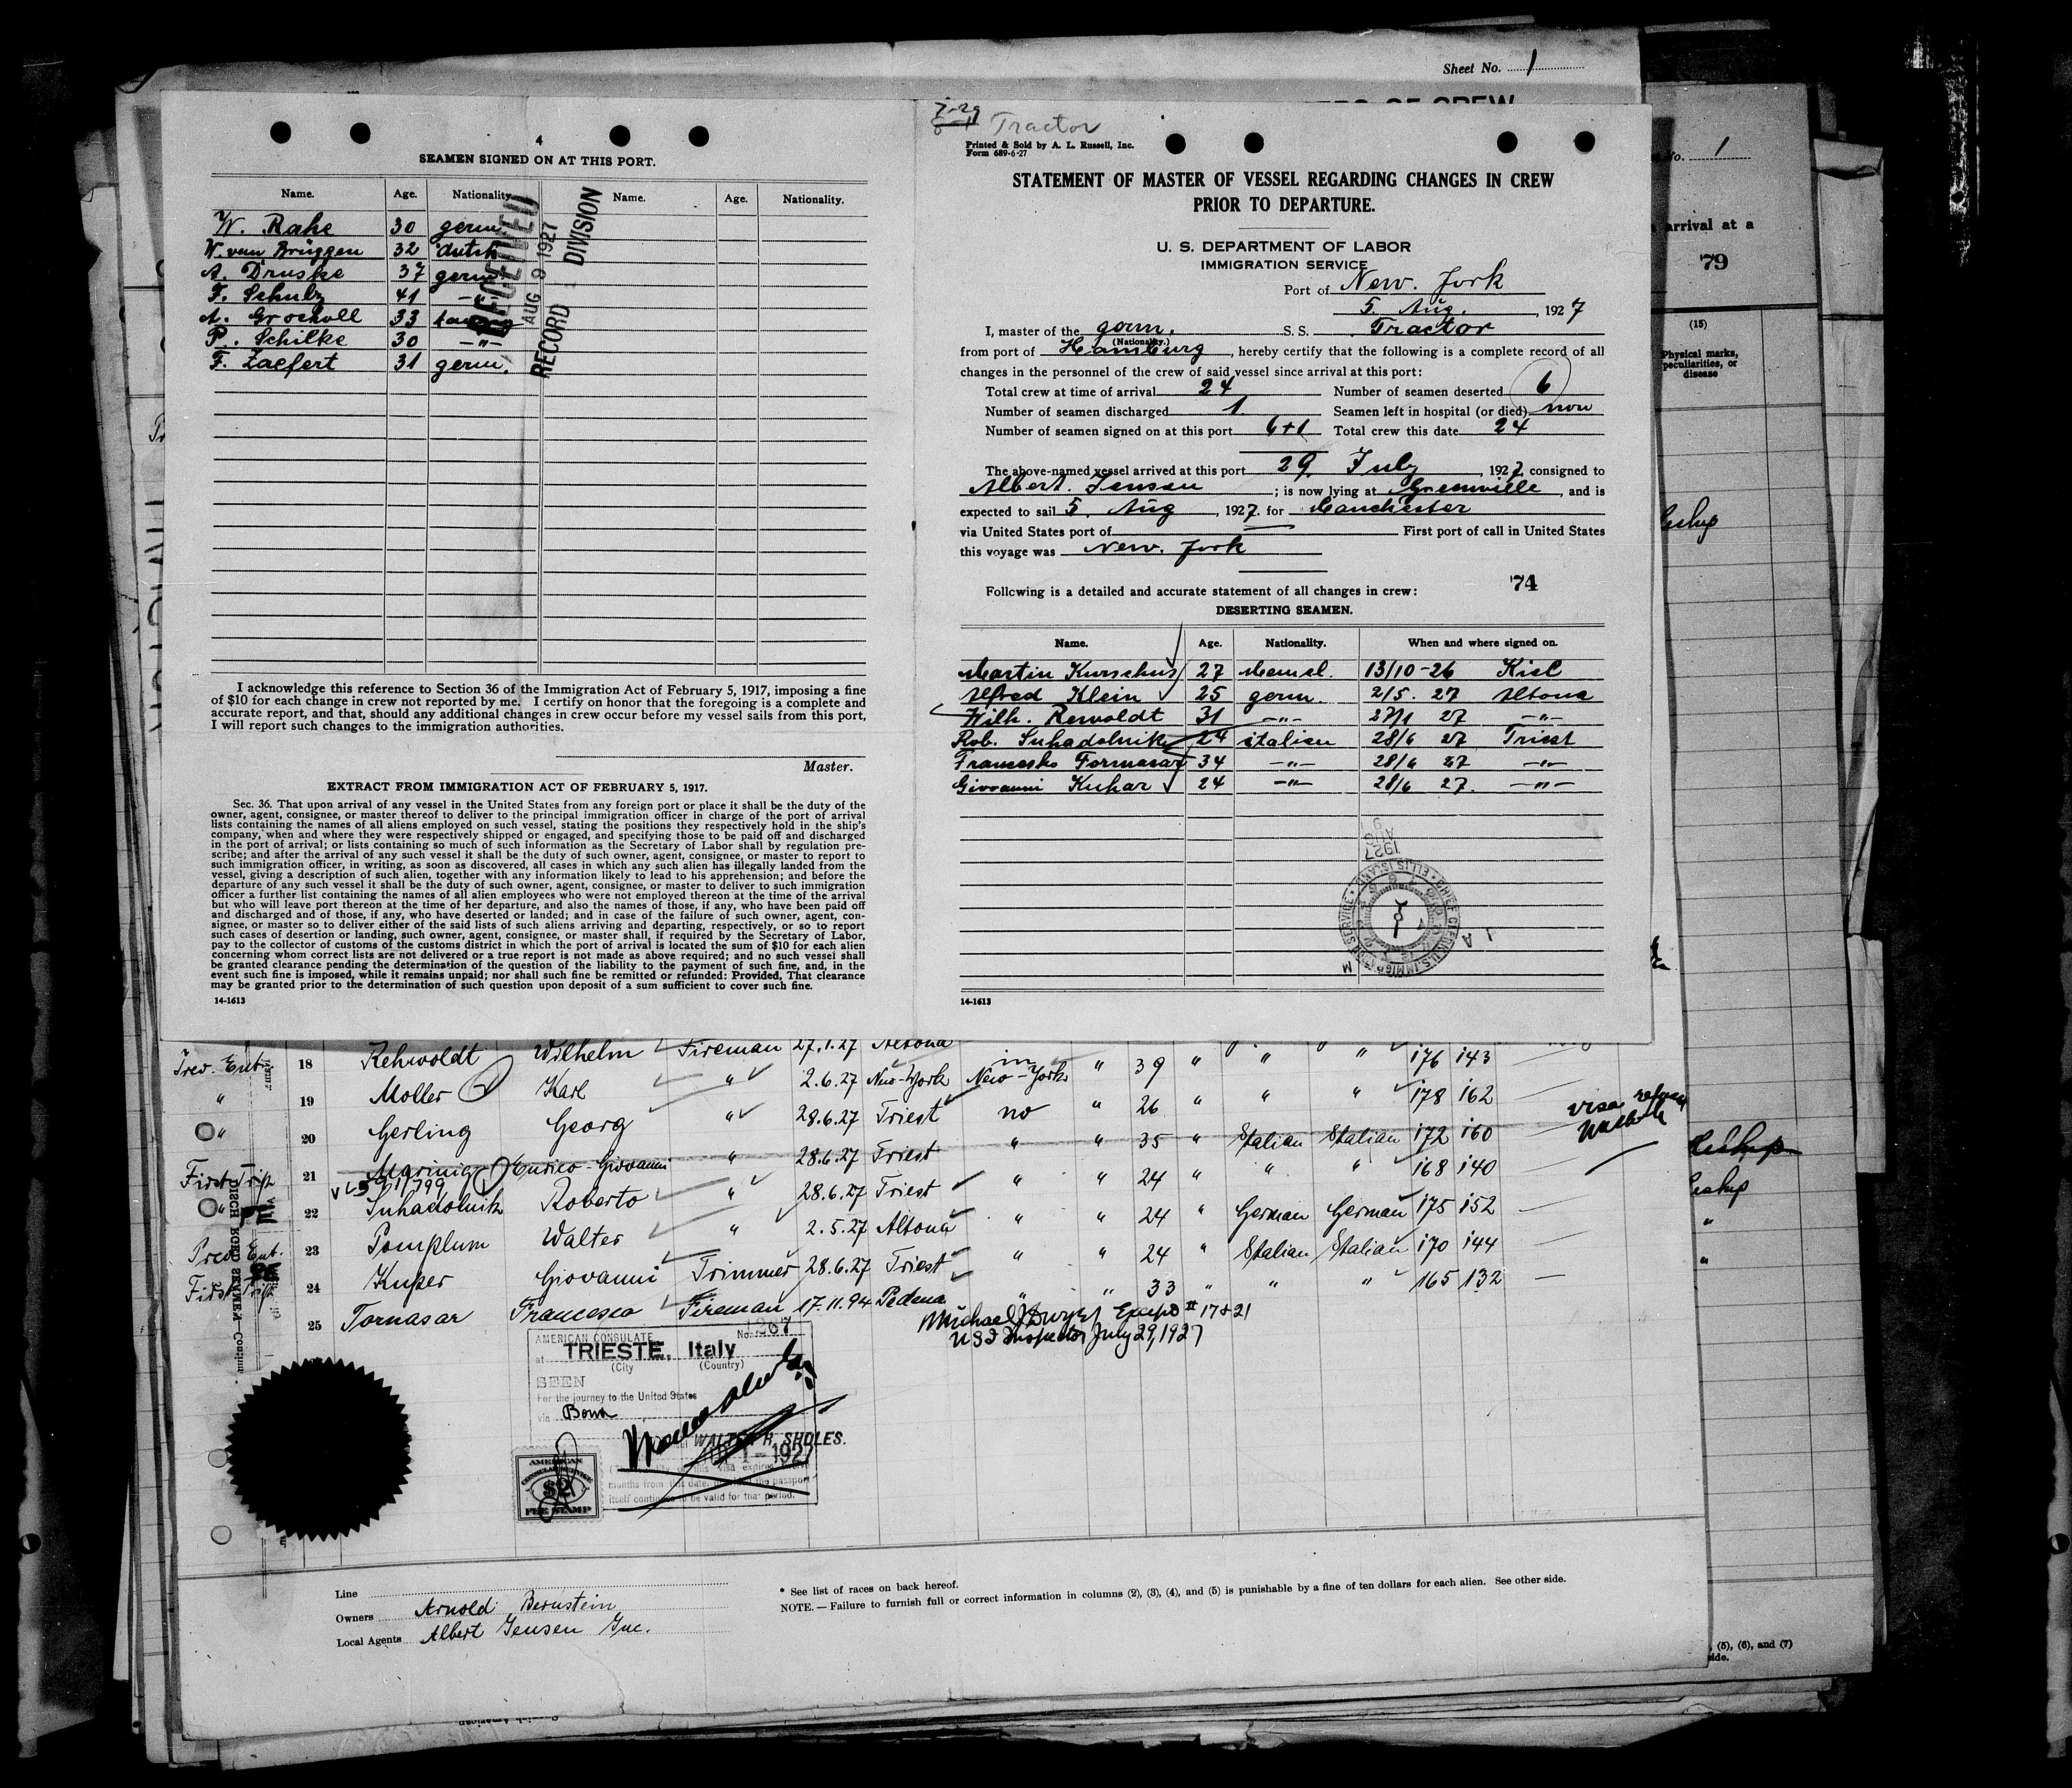 Sheet No. 1
4
SEAMEN SIGNED ON AT THIS PORT.
Name. Age. Nationality. Name. Age. Nationality.
W. Rahe 30 germ.
W. van Brüggen 32 dutch
A. Druske 37 germ.
F. Schulz 41 -"-
A. Groskoll 33
P. Schilke 30 -"-
F. Zaefert 31 germ.
RECEIVED
AUG 9 1927
RECORD DIVISION
I acknowledge this reference to Section 36 of the Immigration Act of February 5, 1917, imposing a fine
of $10 for each change in crew not reported by me. I certify on honor that the foregoing is a complete and
accurate report, and that, should any additional changes in crew occur before my vessel sails from this port,
I will report such changes to the immigration authorities.
Master.
EXTRACT FROM IMMIGRATION ACT OF FEBRUARY 5, 1917.
Sec. 36. That upon arrival of any vessel in the United States from any foreign port or place it shall be the duty of the
owner, agent, consignee, or master thereof to deliver to the principal immigration officer in charge of the port of arrival
lists containing the names of all aliens employed on such vessel, stating the positions they respectively hold in the ship's
company, when and where they were respectively shipped or engaged, and specifying those to be paid off and discharged
in the port of arrival; or lists containing so much of such information as the Secretary of Labor shall by regulation pre-
scribe; and after the arrival of any such vessel it shall be the duty of such owner, agent, consignee, or master to report to
such immigration officer, in writing, as soon as discovered, all cases in which any such alien has illegally landed from the
vessel, giving a description of such alien, together with any information likely to lead to his apprehension; and before the
departure of any such vessel it shall be the duty of such owner, agent, consignee, or master to deliver to such immigration
officer a further list containing the names of all alien employees who were not employed thereon at the time of the arrival
but who will leave port thereon at the time of her departure, and also the names of those, if any, who have been paid off
and discharged and of those, if any, who have deserted or landed; and in case of the failure of such owner, agent, con-
signee, or master so to deliver either of the said lists of such aliens arriving and departing, respectively, or so to report
such cases of desertion or landing, such owner, agent, consignee, or master shall, if required by the Secretary of Labor,
pay to the collector of customs of the customs district in which the port of arrival is located the sum of $10 for each alien
concerning whom correct lists are not delivered or a true report is not made as above required; and no such vessel shall
be granted clearance pending the determination of the question of the liability to the payment of such fine, and, in the
event such fine is imposed, while it remains unpaid; nor shall such fine be remitted or refunded: Provided, That clearance
may be granted prior to the determination of such question upon deposit of a sum sufficient to cover such fine.
14-1613
7-29
Tractor
Printed & Sold by A. L. Russell, Inc.
Form 689-6-27
STATEMENT OF MASTER OF VESSEL REGARDING CHANGES IN CREW
PRIOR TO DEPARTURE.
U. S. DEPARTMENT OF LABOR
IMMIGRATION SERVICE
Port of New. York
5. Aug. , 1927
I, master of the germ. S. S. Tractor
(Nationality.)
from port of Hamburg , hereby certify that the following is a complete record of all
changes in the personnel of the crew of said vessel since arrival at this port:
Total crew at time of arrival 24 Number of seamen deserted 6
Number of seamen discharged 1 Seamen left in hospital (or died) non
Number of seamen signed on at this port 6+1 Total crew this date 24
The above-named vessel arrived at this port 29. July , 1927, consigned to
Albert. Jensen ; is now lying at Greenville , and is
expected to sail 5. Aug , 1927. for Manchester
via United States port of First port of call in United States
this voyage was New. York
74
Following is a detailed and accurate statement of all changes in crew:
DESERTING SEAMEN.
Name. Age. Nationality. When and where signed on.
Martin Kurschus 27 Memel. 13/10-26 Kiel
Alfred Klein 25 germ. 2/5. 27 Altona
Wilh. Rewoldt 31 -"- 27/1 27 -"-
Rob. Suhadolnik 24 italien 28/6 27 Triest
Francesko Formasar 34 -"- 28/6 27 -"-
Giovanni Kuhar 24 -"- 28/6 27. -"-
AUG 9 1927
CHIEF CLERK U.S. IMMIGRATION SERVICE ELLIS ISLAND
14-1613
No. 1
arrival at a
79
(15)
Physical marks,
peculiarities, or
disease
Prev. Ent. 18 Rehwoldt Wilhelm Fireman 27.1.27 Altona " 39 " " " 176 143
" 19 Moller Karl " 2.6.27 New-York in New-York " 26 " " " 178 162
" 20 Gerling Georg " 28.6.27 Triest no " 35 " Italian Italian 172 160
First Trip 21 Marinig Enrico-Giovanni " 28.6.27 Triest " " 24 " " " 168 140
" 22 Suhadolnik Roberto " 28.6.27 Triest " " 24 " German German 175 152
Prev. Ent. 23 Pomplum Walter " 2.5.27 Altona " " 24 " Italian Italian 170 144
First Trip 24 Kuper Giovanni Trimmer 28.6.27 Triest " " 33 " " " 165 132
25 Tornasar Francesco Fireman 17.11.94 Pedena
visa
Michael J Dwyer Except # 17 & 21
U S I Inspector July 29, 1927
AMERICAN CONSULATE No. 1267
at TRIESTE, Italy
(City (Country)
SEEN
For the journey to the United States
via Bona
WALTER H. SHOLES.
1 - 1927
months from this date. the passport
itself continues to be valid for that period.
AMERICAN
CONSULAR SERVICE
$2
FEE STAMP
Line
Owners Arnold Bernstein
Local Agents Albert Jensen Inc.
* See list of races on back hereof.
NOTE.—Failure to furnish full or correct information in columns (2), (3), (4), and (5) is punishable by a fine of ten dollars for each alien. See other side.
, (5), (6), and (7)
side.